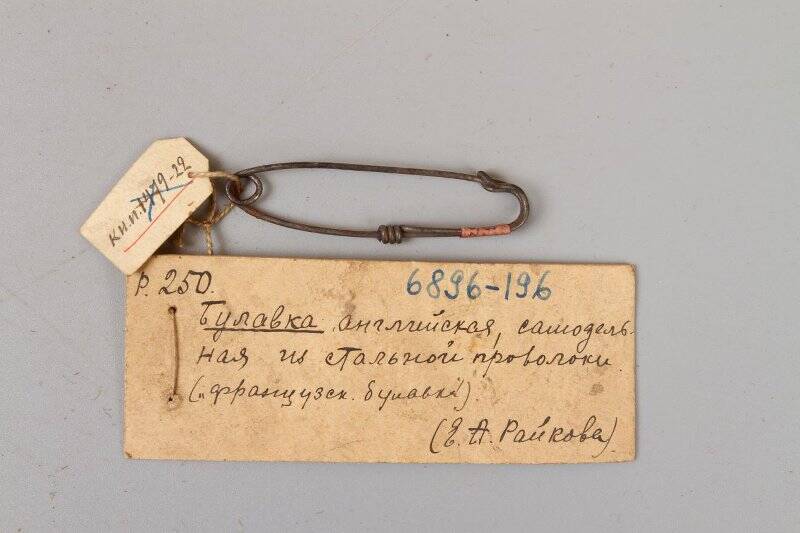 К.И.И. 1919-22
Р. 250.
6896-196
Булавка английская, самодель-
ная из стальной проволоки
("французск. булавка").
(Е. А. Райкова)